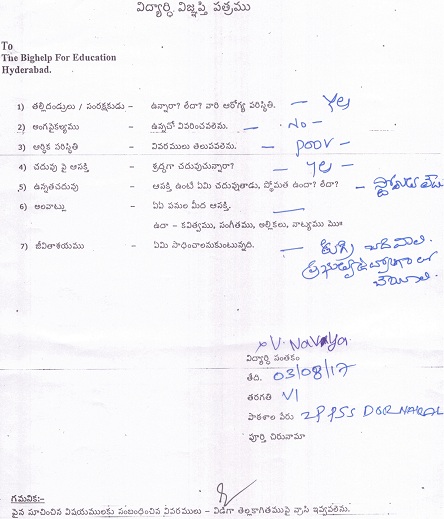 విద్యార్ధి విజ్ఞప్తి పత్రము
To
The Bighelp For Education
Hyderabad.
1) తల్లిదండ్రులు / సంరక్షకుడు - ఉన్నారా? లేదా? వారి ఆరోగ్య పరిస్థితి. — Yes
2) అంగవైకల్యము - ఉన్నచో వివరించవలెను. — No —
3) ఆర్థిక పరిస్థితి - వివరములు తెలుపవలెను. — poor —
4) చదువు పై ఆసక్తి - శ్రద్ధగా చదువుచున్నారా? — Yes —
5) ఉన్నతచదువు - ఆసక్తి ఉంటే ఏమి చదువుతాడు, స్థోమత ఉందా? లేదా?
6) అలవాట్లు - ఏఏ పనుల మీద ఆసక్తి. —
ఉదా - కవిత్వము, సంగీతము, అల్లికలు, నాట్యము
7) జీవితాశయము - ఏమి సాధించాలనుకుంటున్నది. — డిగ్రీ చదవాలి.
చేయాలి.
V. Navya
విద్యార్థి సంతకం
తేది. 03/08/17
తరగతి VI
పాఠశాల పేరు ZPPSS DORNAKAL
పూర్తి చిరునామా
గమనిక:-
పైన సూచించిన విషయములకు సంబంధించిన వివరములు - విడిగా తెల్లకాగితముపై వ్రాసి ఇవ్వవలెను.